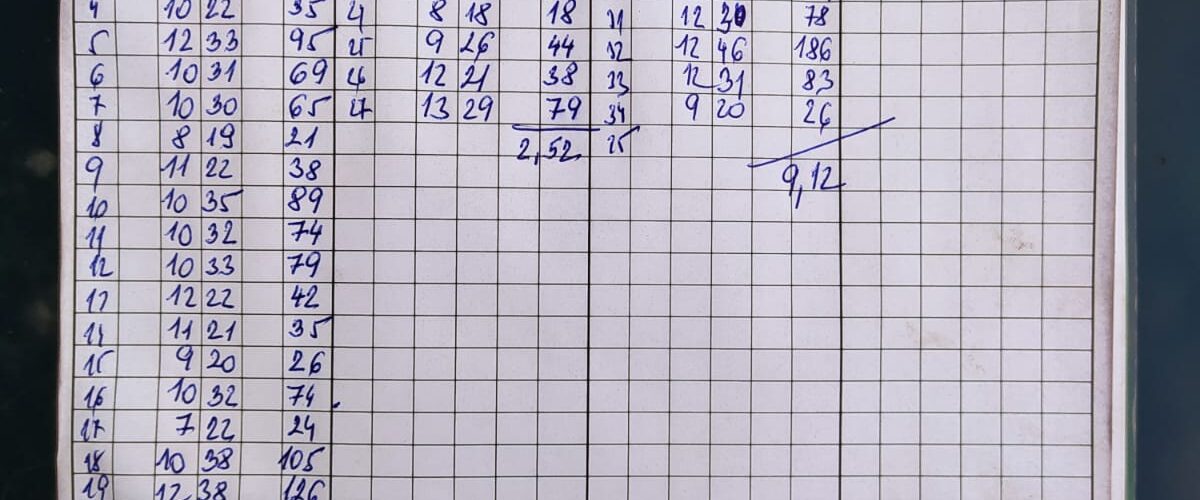 4 10 22 35 21 8 18 18 31 12 30 78
5 12 33 95 25 9 26 44 32 12 46 186
6 10 31 69 26 12 21 38 33 12 31 83
7 10 30 65 27 13 29 79 34 9 20 26
8 8 19 21 2,52 25
9 11 22 38 9,12
10 10 35 89
11 10 32 74
12 10 33 79
13 12 22 42
14 11 21 35
15 9 20 26
16 10 32 74
17 7 22 24
18 10 38 105
19 12 38 126